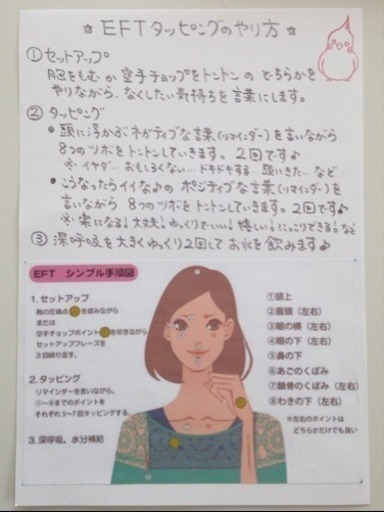 ☆ EFTタッピングのやり方 ☆
① セットアップ
胸をもむか空手チョップをトントンの どちらかを
やりながら、なくしたい気持ちを言葉にします。
② タッピング
• 頭に浮かぶネガティブな言葉(リマインダー)を言いながら
8つのツボをトントンしていきます。2回です♪
イヤダ… おもしろくない… ドキドキする… 頭にきた… など
• こうなったらイイな♪の ポジティブな言葉(リマインダー)を
言いながら 8つのツボをトントンしていきます。2回です♪
楽になる! 大丈夫! ゆっくりでいい! 嬉しい! にっこりできる! など
③ 深呼吸を大きくゆっくり2回して お水を飲みます♪
EFT シンプル手順図
1. セットアップ
胸の圧痛点を揉みながら
または
空手チョップポイントを叩きながら
セットアップフレーズを
3回繰り返す。
2. タッピング
リマインダーを言いながら、
①〜⑧までのポイントを
それぞれ5〜7回タッピングする。
3. 深呼吸、水分補給
①頭上
②眉頭(左右)
③眼の横(左右)
④眼の下(左右)
⑤鼻の下
⑥あごのくぼみ
⑦鎖骨のくぼみ(左右)
⑧わきの下(左右)
※左右のポイントは
どちらかだけでも良い